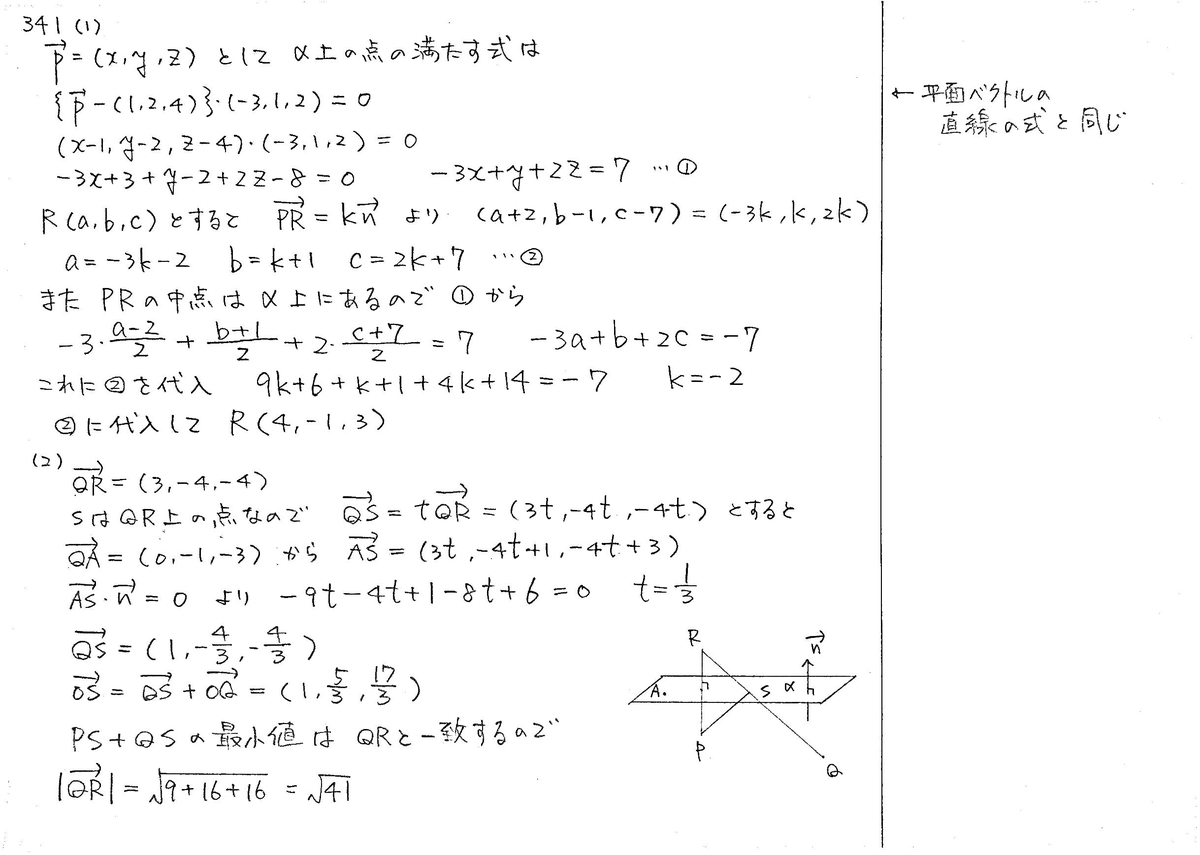 341 (1)
p→ = (x, y, z) として α上の点の満たす式は
{p→ - (1, 2, 4)}・(-3, 1, 2) = 0
(x-1, y-2, z-4)・(-3, 1, 2) = 0
-3x+3+y-2+2z-8 = 0  -3x+y+2z = 7 …①
R(a, b, c) とすると PR→ = kn→ より (a+2, b-1, c-7) = (-3k, k, 2k)
a = -3k-2  b = k+1  c = 2k+7 …②
また PRの中点は α上にあるので ①から
-3・(a-2)/2 + (b+1)/2 + 2・(c+7)/2 = 7  -3a+b+2c = -7
これに②を代入  9k+6+k+1+4k+14 = -7  k = -2
②に代入して R(4, -1, 3)
(2)
QR→ = (3, -4, -4)
SはQR上の点なので QS→ = tQR→ = (3t, -4t, -4t) とすると
QA→ = (0, -1, -3) から AS→ = (3t, -4t+1, -4t+3)
AS→・n→ = 0 より -9t-4t+1-8t+6 = 0  t = 1/3
QS→ = (1, -4/3, -4/3)
OS→ = QS→ + OQ→ = (1, 5/3, 17/3)
PS+QSの最小値は QRと一致するので
|QR→| = √(9+16+16) = √41
R
n→
A.
S
α
P
Q
← 平面ベクトルの
直線の式と同じ